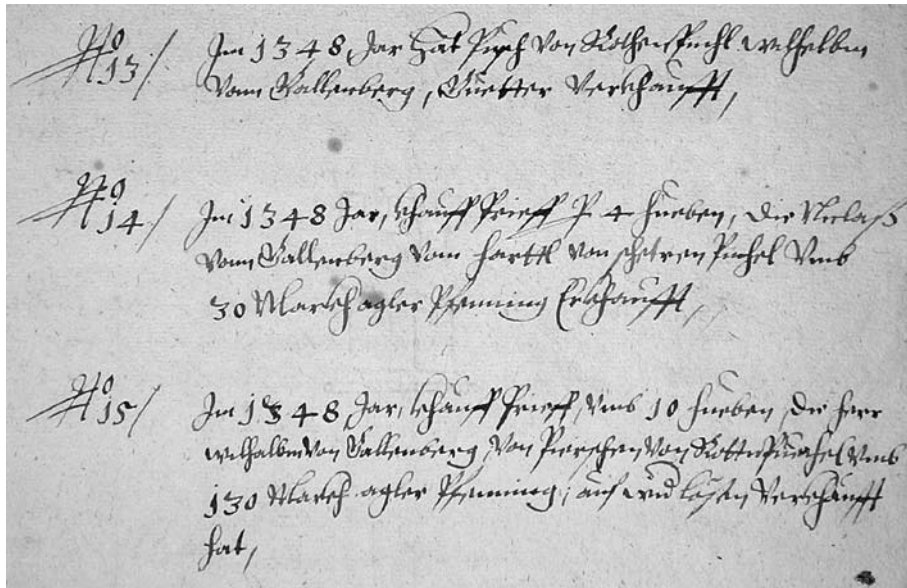 No 13/ Im 1348 Jar hat von Rothen Puchl wilhelbm
vonn Gallenberg, Guetter Verkhaufft,
No 14/ Im 1348 Jar, khauff Prieff P 4 hueben, die Niclaß
vonn Gallenberg vom harttl von Puchel vmb
30 Markh agler Pfenning Erkhaufft,
No 15/ Im 1348 Jar, khauff Prieff, vmb 10 hueben, die herr
wilhalbm von Gallenberg, von von Rottnpuchel vmb
130 Markh agler Pfenning, auf Verkhaufft
hat,